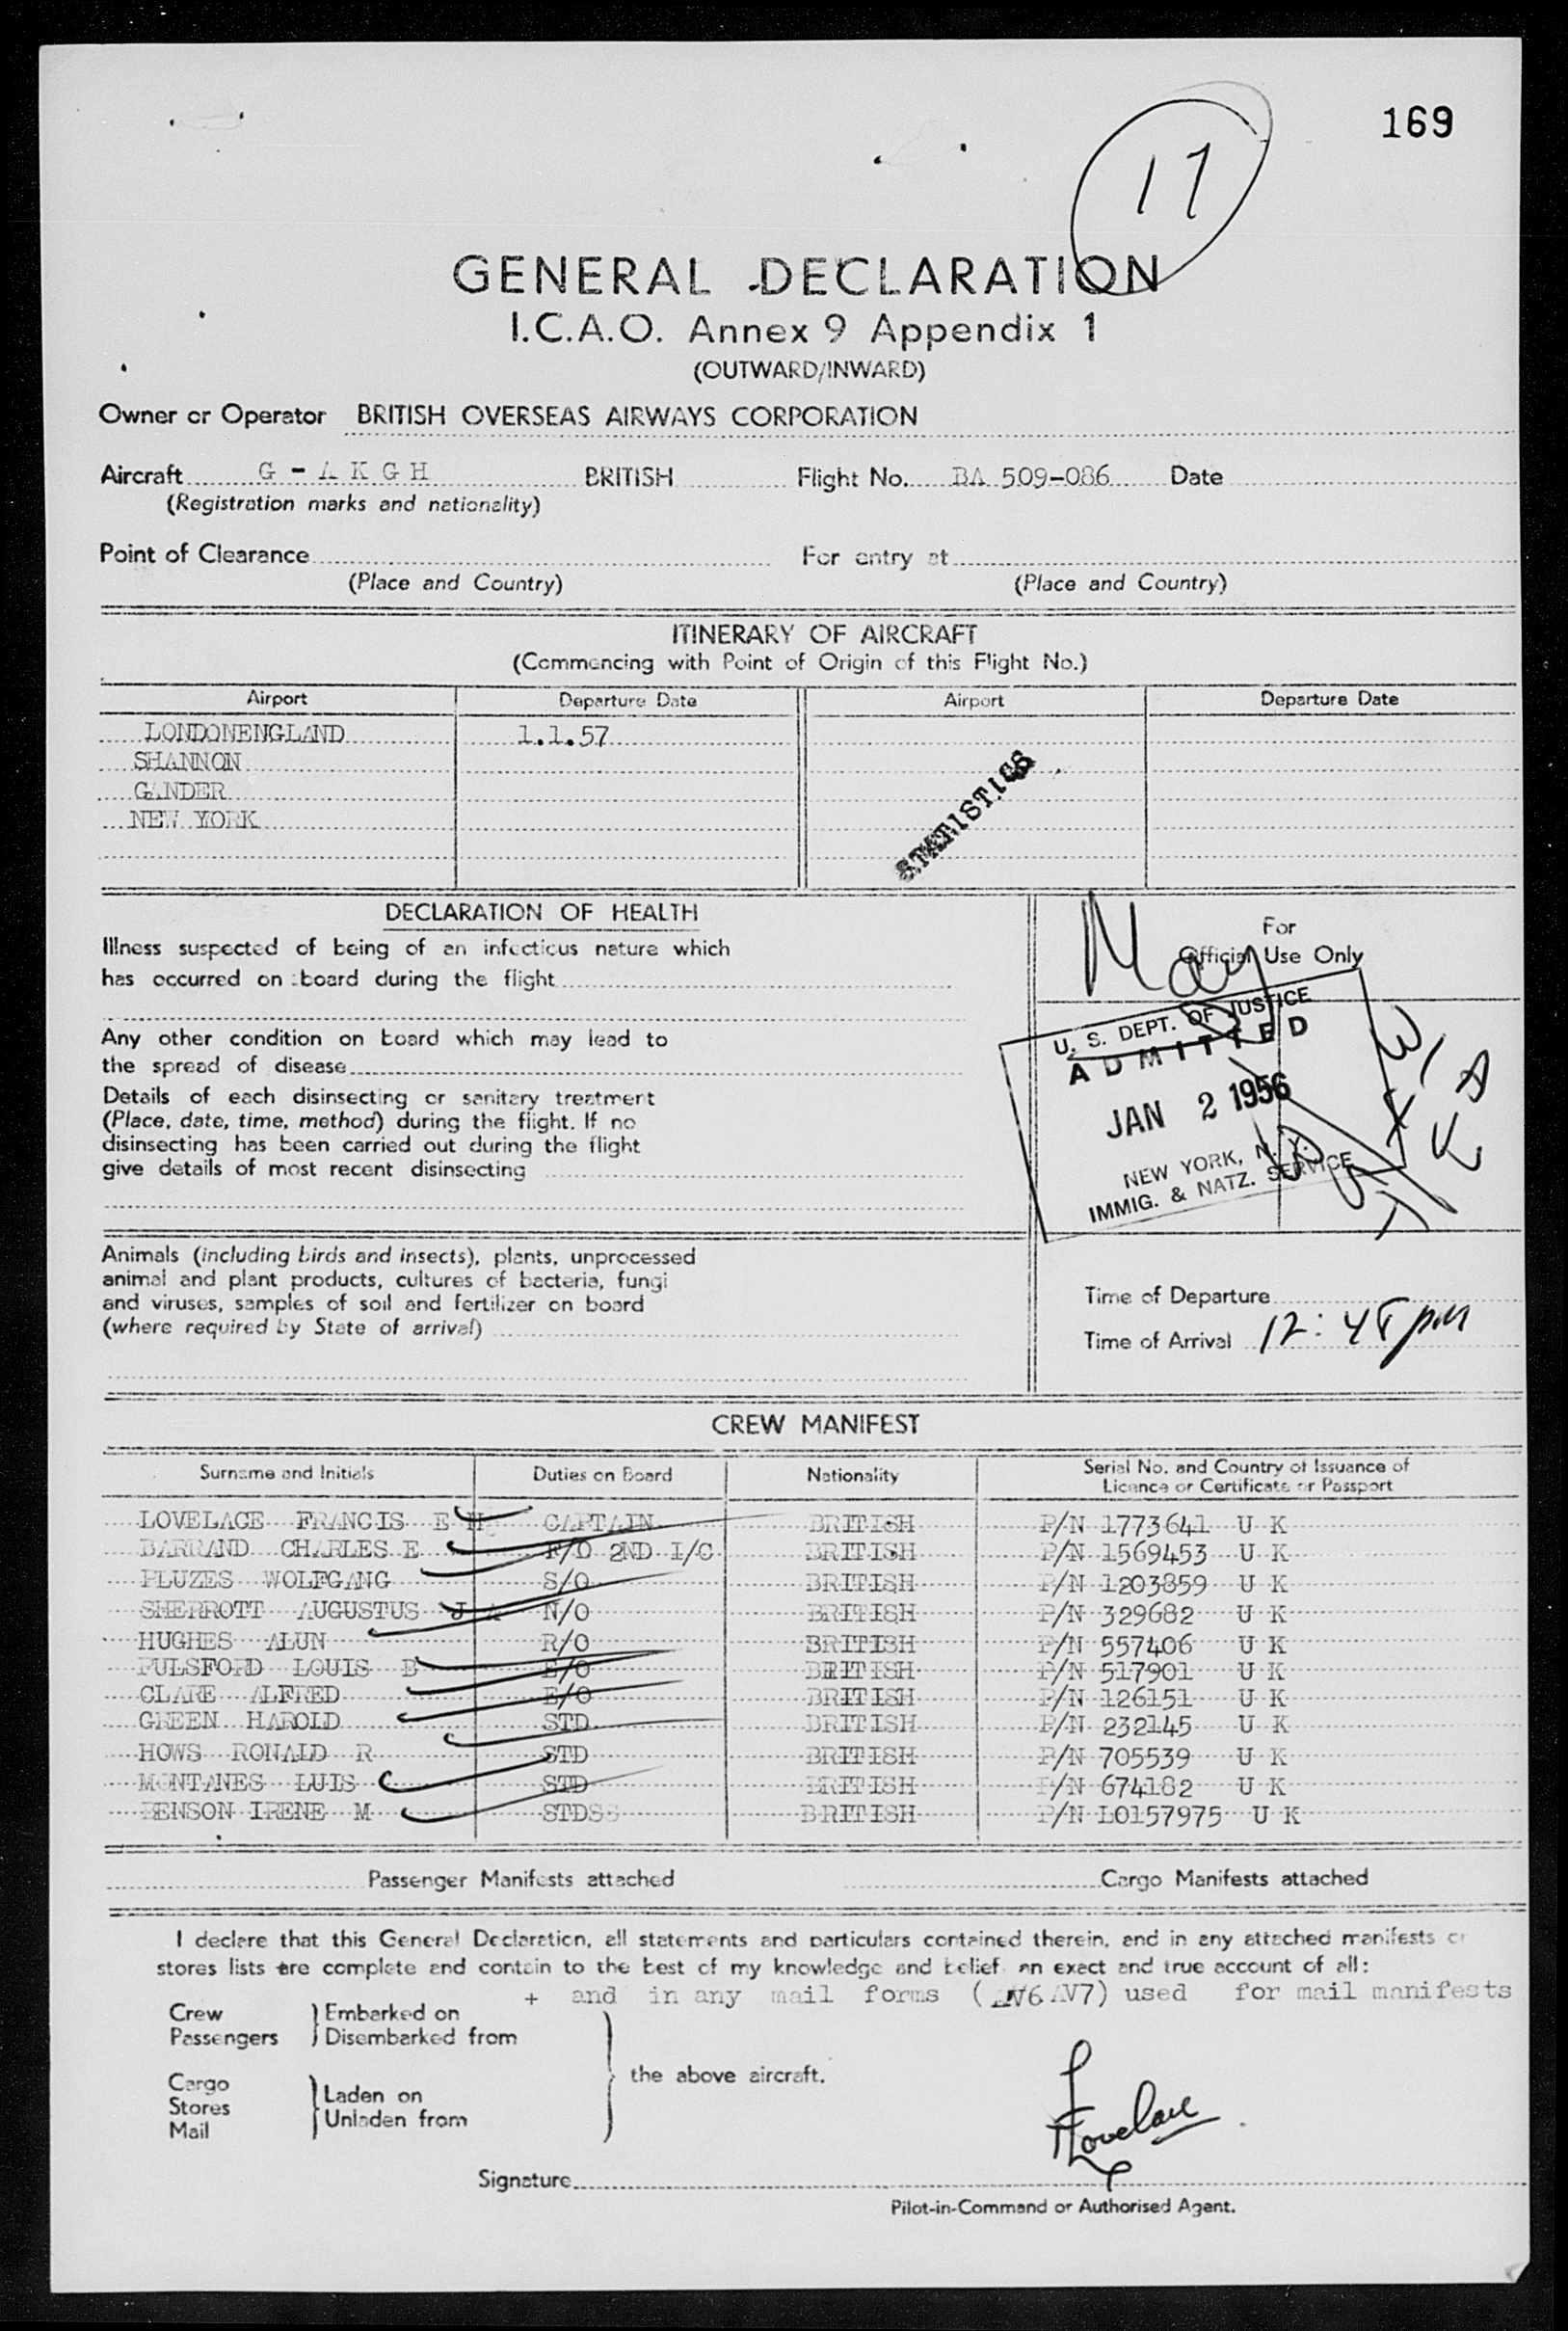 169
17
GENERAL DECLARATION
I.C.A.O. Annex 9 Appendix 1
(OUTWARD/INWARD)
Owner or Operator BRITISH OVERSEAS AIRWAYS CORPORATION
Aircraft G - A K G H BRITISH Flight No. BA 509-086 Date
(Registration marks and nationality)
Point of Clearance For entry at
(Place and Country) (Place and Country)
ITINERARY OF AIRCRAFT
(Commencing with Point of Origin of this Flight No.)
Airport Departure Date Airport Departure Date
LONDONENGLAND 1.1.57
SHANNON
GANDER
NEW YORK
STATISTICS
DECLARATION OF HEALTH
Illness suspected of being of an infectious nature which
has occurred on board during the flight
Any other condition on board which may lead to
the spread of disease
Details of each disinsecting or sanitary treatment
(Place, date, time, method) during the flight. If no
disinsecting has been carried out during the flight
give details of most recent disinsecting
For
Official Use Only
May
U. S. DEPT. OF JUSTICE
ADMITTED
JAN 2 1956
NEW YORK, N. Y.
IMMIG. & NATZ. SERVICE
Animals (including birds and insects), plants, unprocessed
animal and plant products, cultures of bacteria, fungi
and viruses, samples of soil and fertilizer on board
(where required by State of arrival)
Time of Departure
Time of Arrival 12:45 pm
CREW MANIFEST
Surname and Initials Duties on Board Nationality Serial No. and Country of Issuance of
Licence or Certificate or Passport
LOVELACE FRANCIS E H CAPTAIN BRITISH P/N 1773641 U K
BARRAND CHARLES E F/O 2ND I/C BRITISH P/N 1569453 U K
PLUZES WOLFGANG S/O BRITISH P/N 1203859 U K
SHERROTT AUGUSTUS J A N/O BRITISH P/N 329682 U K
HUGHES ALUN R/O BRITISH P/N 557406 U K
PULSFORD LOUIS B E/O BRITISH P/N 517901 U K
CLARE ALFRED E/O BRITISH P/N 126151 U K
GREEN HAROLD STD BRITISH P/N 232145 U K
HOWS RONALD R STD BRITISH P/N 705539 U K
MONTANES LUIS STD BRITISH P/N 674182 U K
BENSON IRENE M STDSS BRITISH P/N LO157975 U K
Passenger Manifests attached Cargo Manifests attached
I declare that this General Declaration, all statements and particulars contained therein, and in any attached manifests or
stores lists are complete and contain to the best of my knowledge and belief an exact and true account of all:
+ and in any mail forms (AV6 AV7) used for mail manifests
Crew Embarked on
Passengers Disembarked from
the above aircraft.
Cargo
Stores Laden on
Mail Unladen from
FLovelace
Signature
Pilot-in-Command or Authorised Agent.